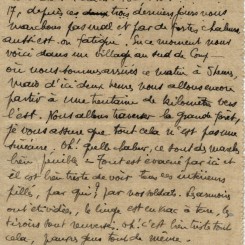 17, depuis ces trois derniers jours nous
marchons pas mal et par de fortes chaleurs
aussi est-on fatigué. En ce moment nous
voici dans un village au sud de
où nous sommes arrivés ce matin à 5 heures,
mais d'ici deux heures nous allons encore
partir à une trentaine de kilomètres vers
l'est. Nous allons traverser la grande forêt,
je vous assure que tout cela n'est pas une
sinécure. Oh! quelle chaleur, ce sont des marches
bien pénibles. Tout est évacué par ici et
il est bien triste de voir tous ces intérieurs
pillés, par qui? par nos soldats. Les armoires
ont été vidées, le linge est en vrac à terre, les
tiroirs tout renversés, oh! c'est bien triste tout
cela, pauvres gens tout de même.